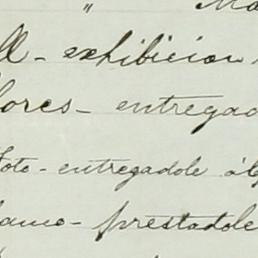 " Ma
ll - exhibicion
lores - entregad
oto - entregadole á
amo - prestadole